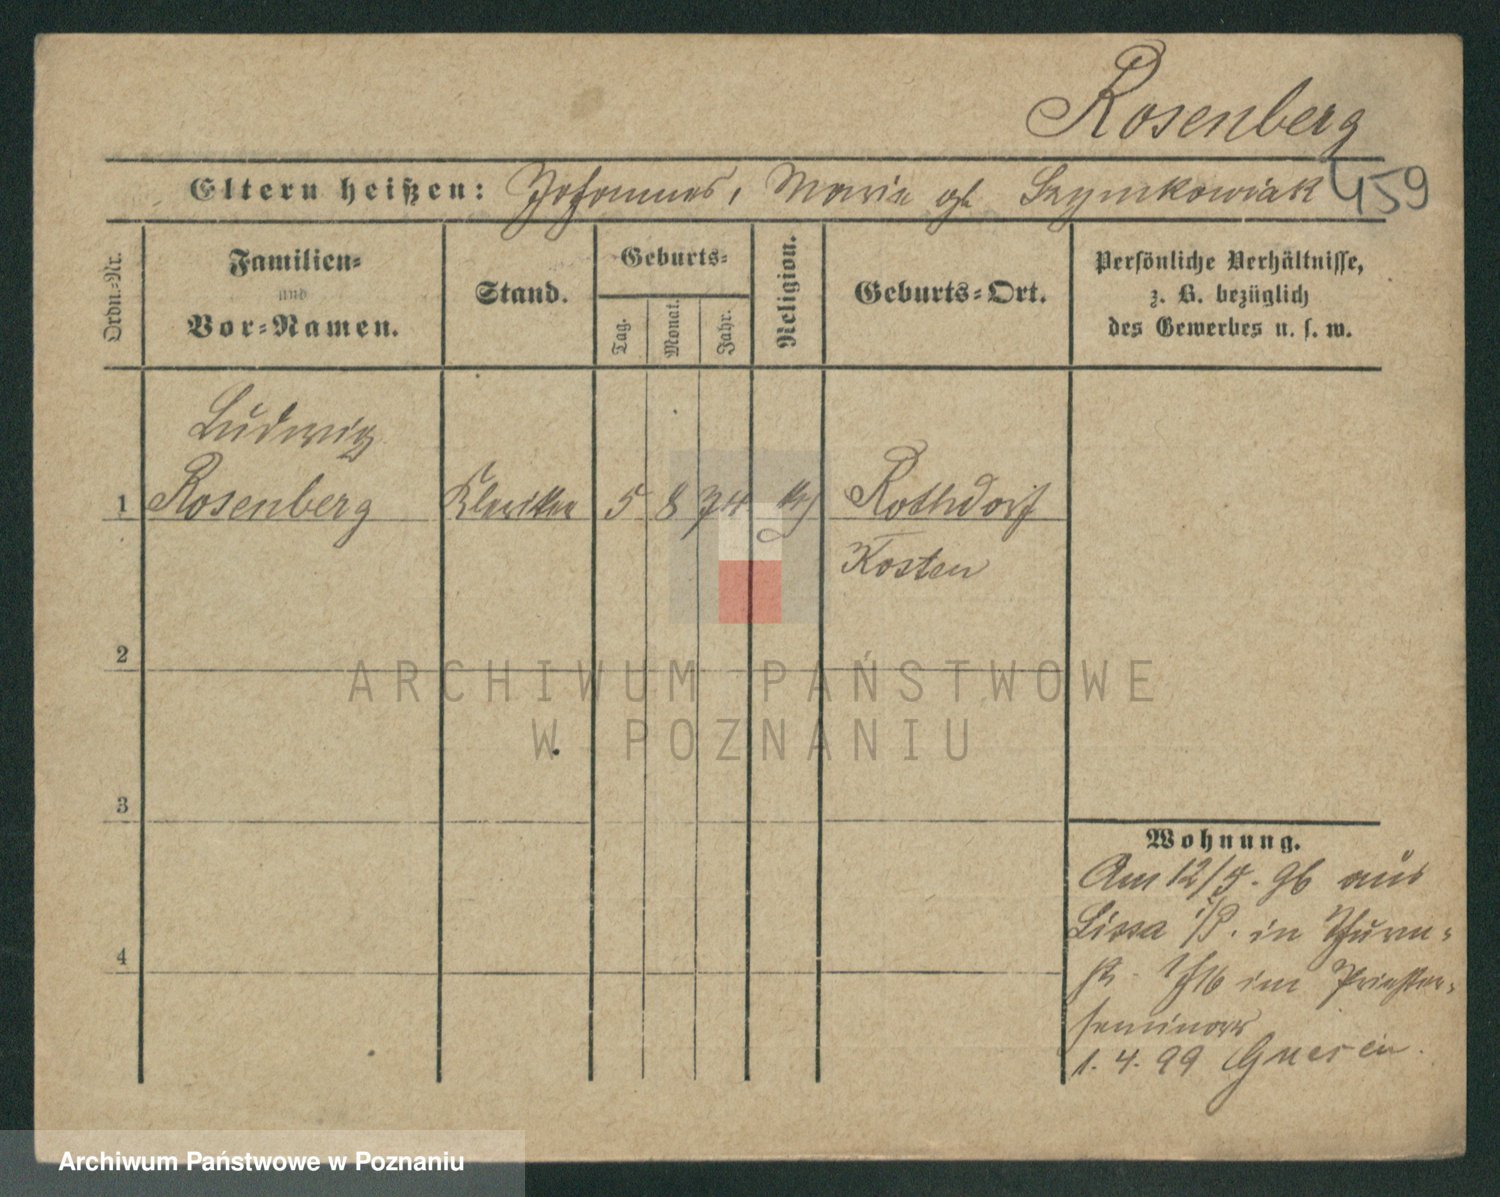 Rosenberg
Eltern heißen: Johannes, Marie gb Szymkowiak
459
Ordn.-Nr.
Familien-
und
Vor-Namen.
Stand.
Geburts-
Tag.
Monat.
Jahr.
Religion.
Geburts-Ort.
Persönliche Verhältnisse,
z. B. bezüglich
des Gewerbes u. s. w.
Ludwig
1 Rosenberg Kleriker 5 8 74 Rothdorf
Kosten
2
3
4
Wohnung.
Am 12/5. 96 aus
Lissa i/P. in Thurm-
str. im Priester-
seminar
1. 4. 99 Gnesen.
ARCHIWUM PAŃSTWOWE
W POZNANIU
Archiwum Państwowe w Poznaniu